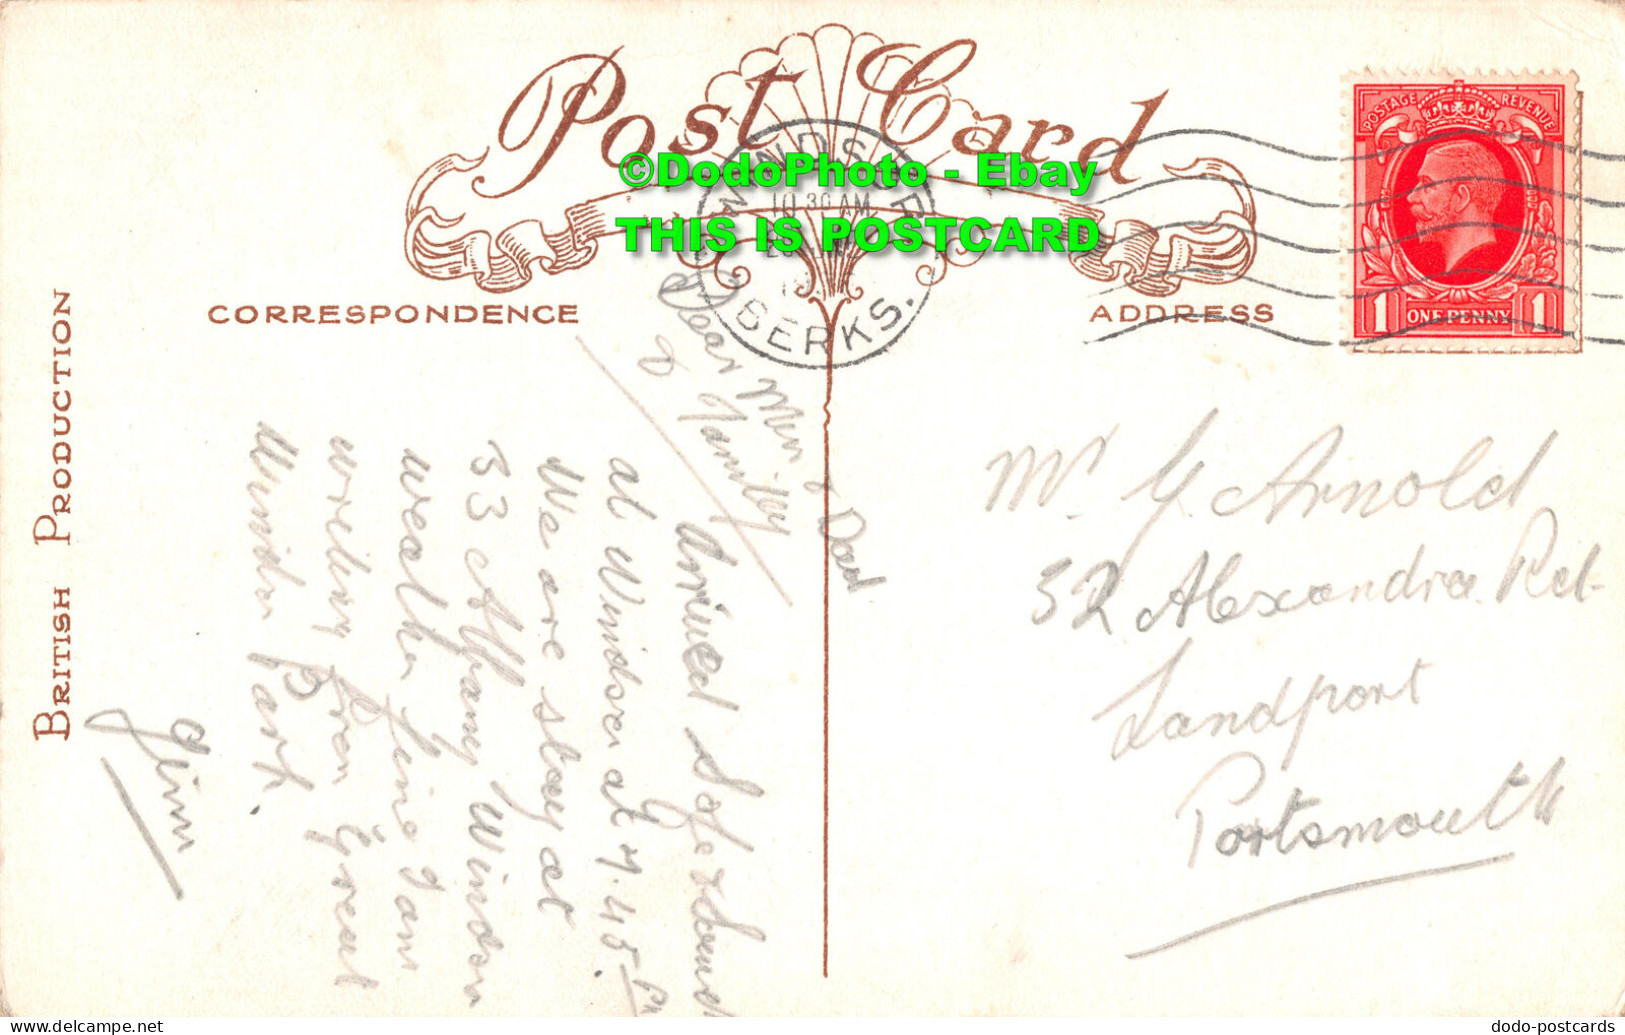 Post Card
©DodoPhoto - Ebay
THIS IS POSTCARD
WINDSOR
10.30 AM
BERKS.
POSTAGE REVENUE
1 ONE PENNY 1
CORRESPONDENCE
ADDRESS
BRITISH PRODUCTION
Dear Mum & Dad
& Family
Arrived Safe & Sound
at Windsor at 7.45 PM
We are stay at
33 Albany Windsor
weather fine I am
writing from Great
Windsor Park.
Jim
Mr. G. Arnold
52 Alexandra Rd.
Landport
Portsmouth
dodo-postcards